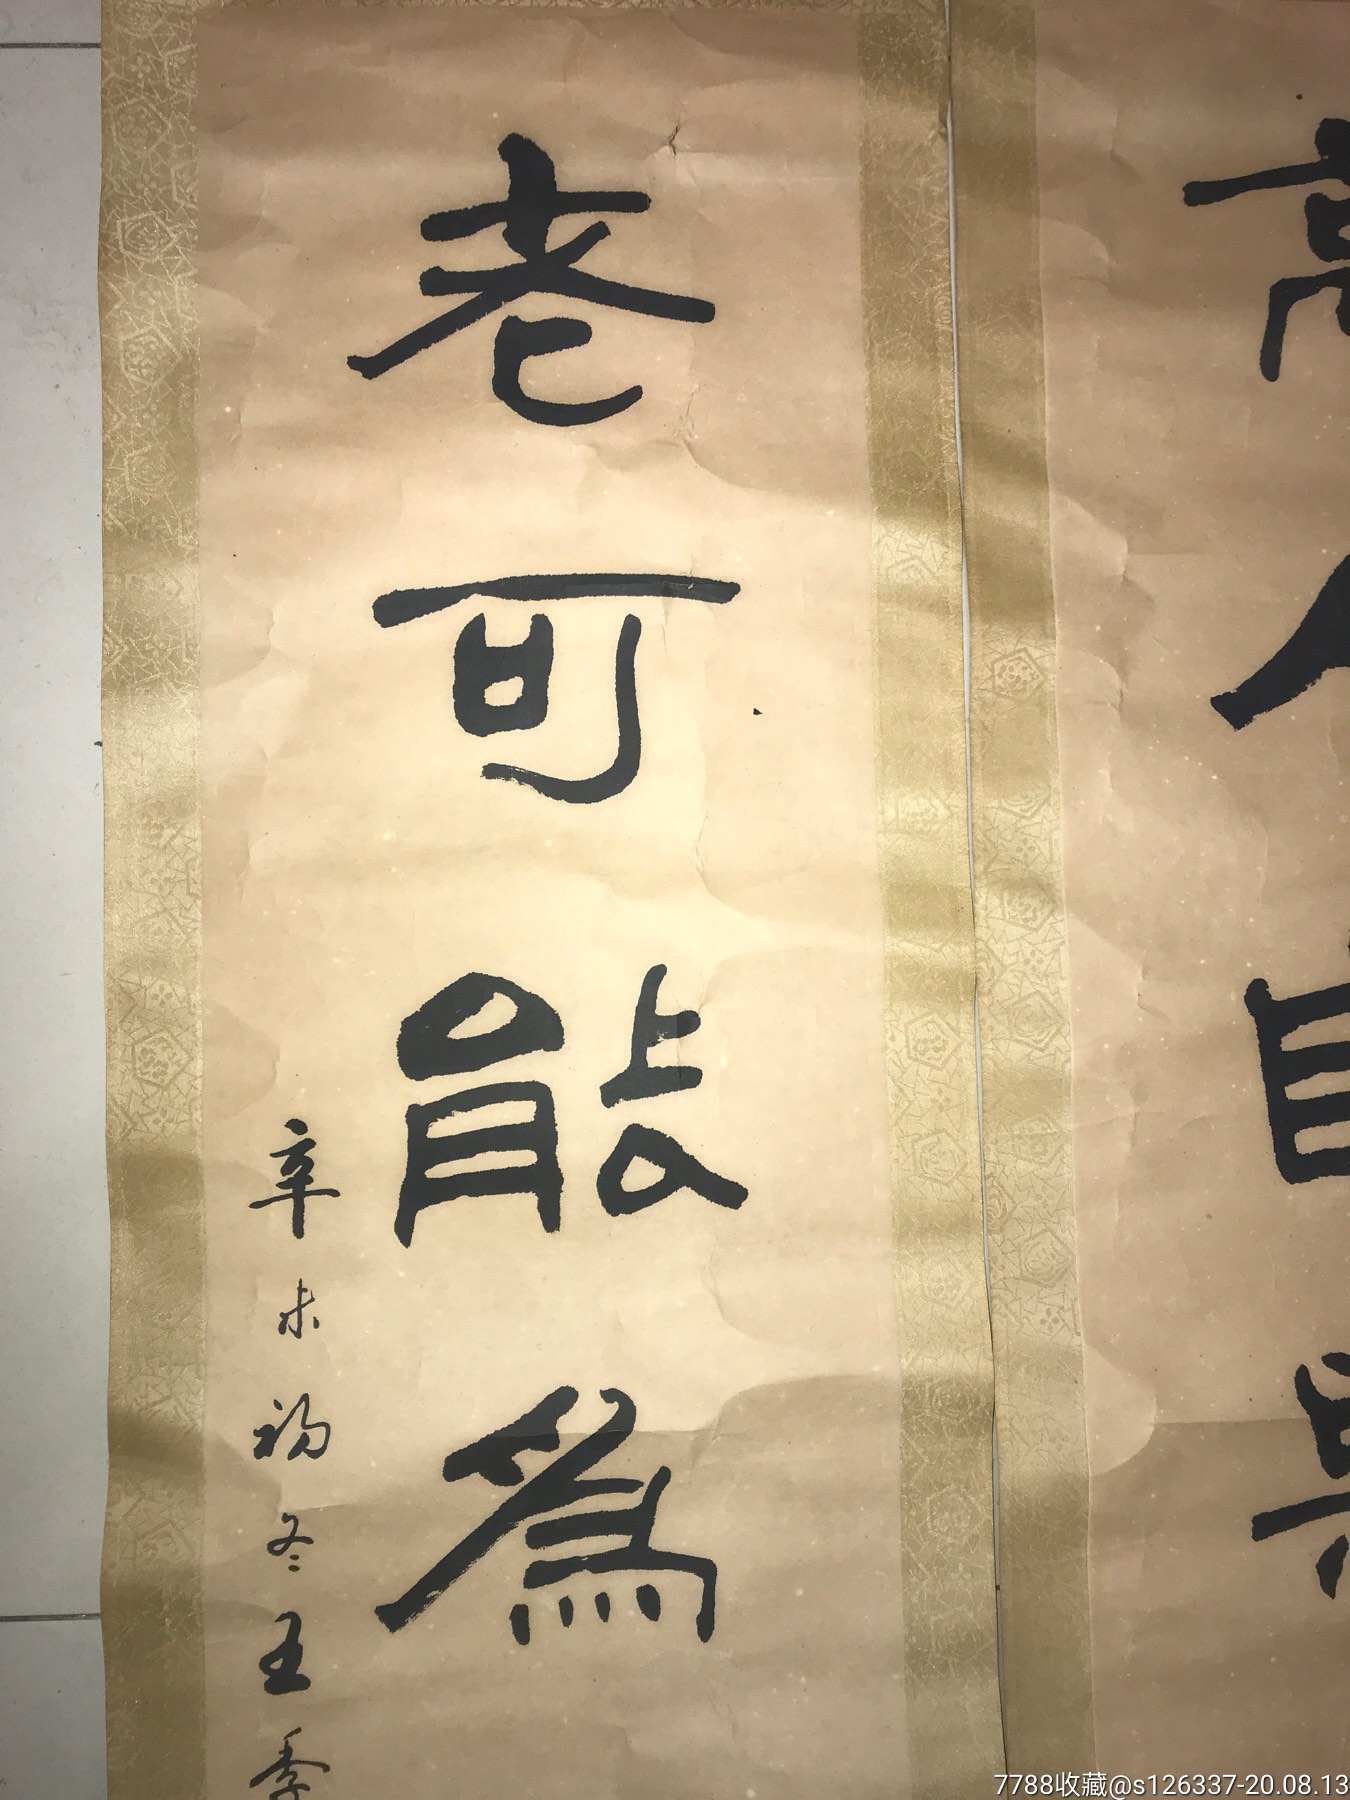 高人自與
老可能為
辛未初冬王季
7788收藏@s126337-20.08.13